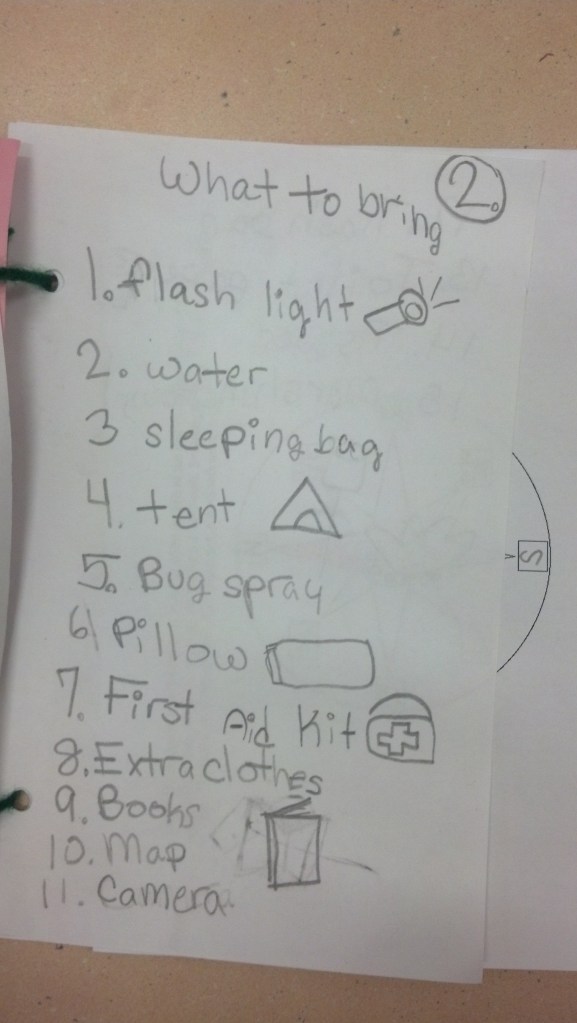 What to bring 2.
1. flash light
2. water
3 sleeping bag
4. tent
5. Bug spray
6 Pillow
7. First Aid Kit
8. Extra clothes
9. Books
10. Map
11. Camera
S